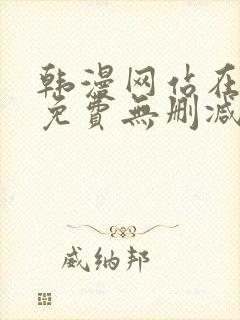 韩漫网佔在
免費無删减
威纳邦